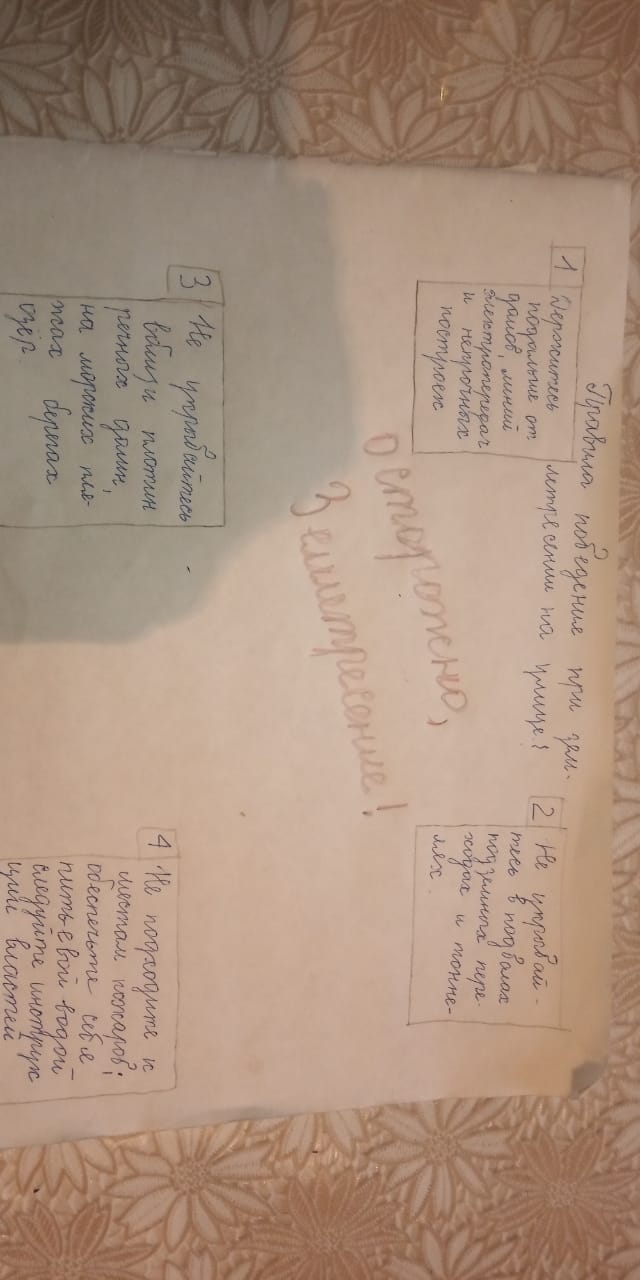 Правила поведения при зем-
летресении на улице!
1
Держитесь
подальше от
домов, линий
электропередач
и непрочных
построек
2
Не укрывай-
тесь в подвалах
подземных пере-
ходах и тонне-
лях.
Осторожно,
Землетресение!
3
Не укрывайтесь
вблизи плотин
речных долин,
на морских пля-
жах берегах
озёр.
4
Не подходите к
местам пожаров;
обеспечьте себя
питьевой водой-
следуйте инструк
ций властей